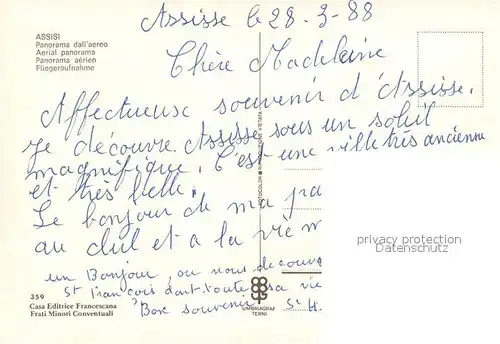 Assisse le 28-3-88
ASSISI
Panorama dall'aereo
Aerial panorama
Panorama aérien
Fliegeraufnahme
Chère Madeleine
Affectueux souvenir d'Assisse.
Je découvre Assisse sous un soleil
magnifique. C'est une ville très ancienne
et très belle.
Le bonjour de ma pa
au club et a la vie m
un Bonjour, ou nous decouv
St François dont toute sa vie
Bon souvenir St H
privacy protection
Datenschutz
359
Casa Editrice Francescana
Frati Minori Conventuali
UMBRIAGRAF
TERNI